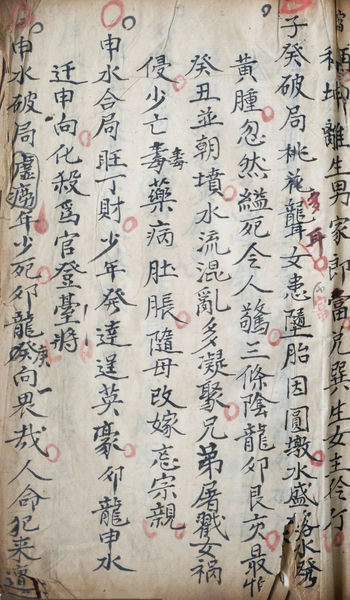 種坤離生男家即富兄巽生女主伶仃
子癸破局桃花聾女患墮胎因圓墩水盛落水發
多耳
黃腫忽然縊死令人驚三條陰龍卯艮亥最
癸丑並朝墳水流混亂多凝聚兄弟屠戮女禍
侵少亡毒藥病肚脹隨母改嫁忘宗親
毒
申水合局旺丁財少年發達逞英豪卯龍申水
迁申向化殺為官登臺將
申水破局虛癆年少死卯龍發向畏哉人命犯來遭
庚